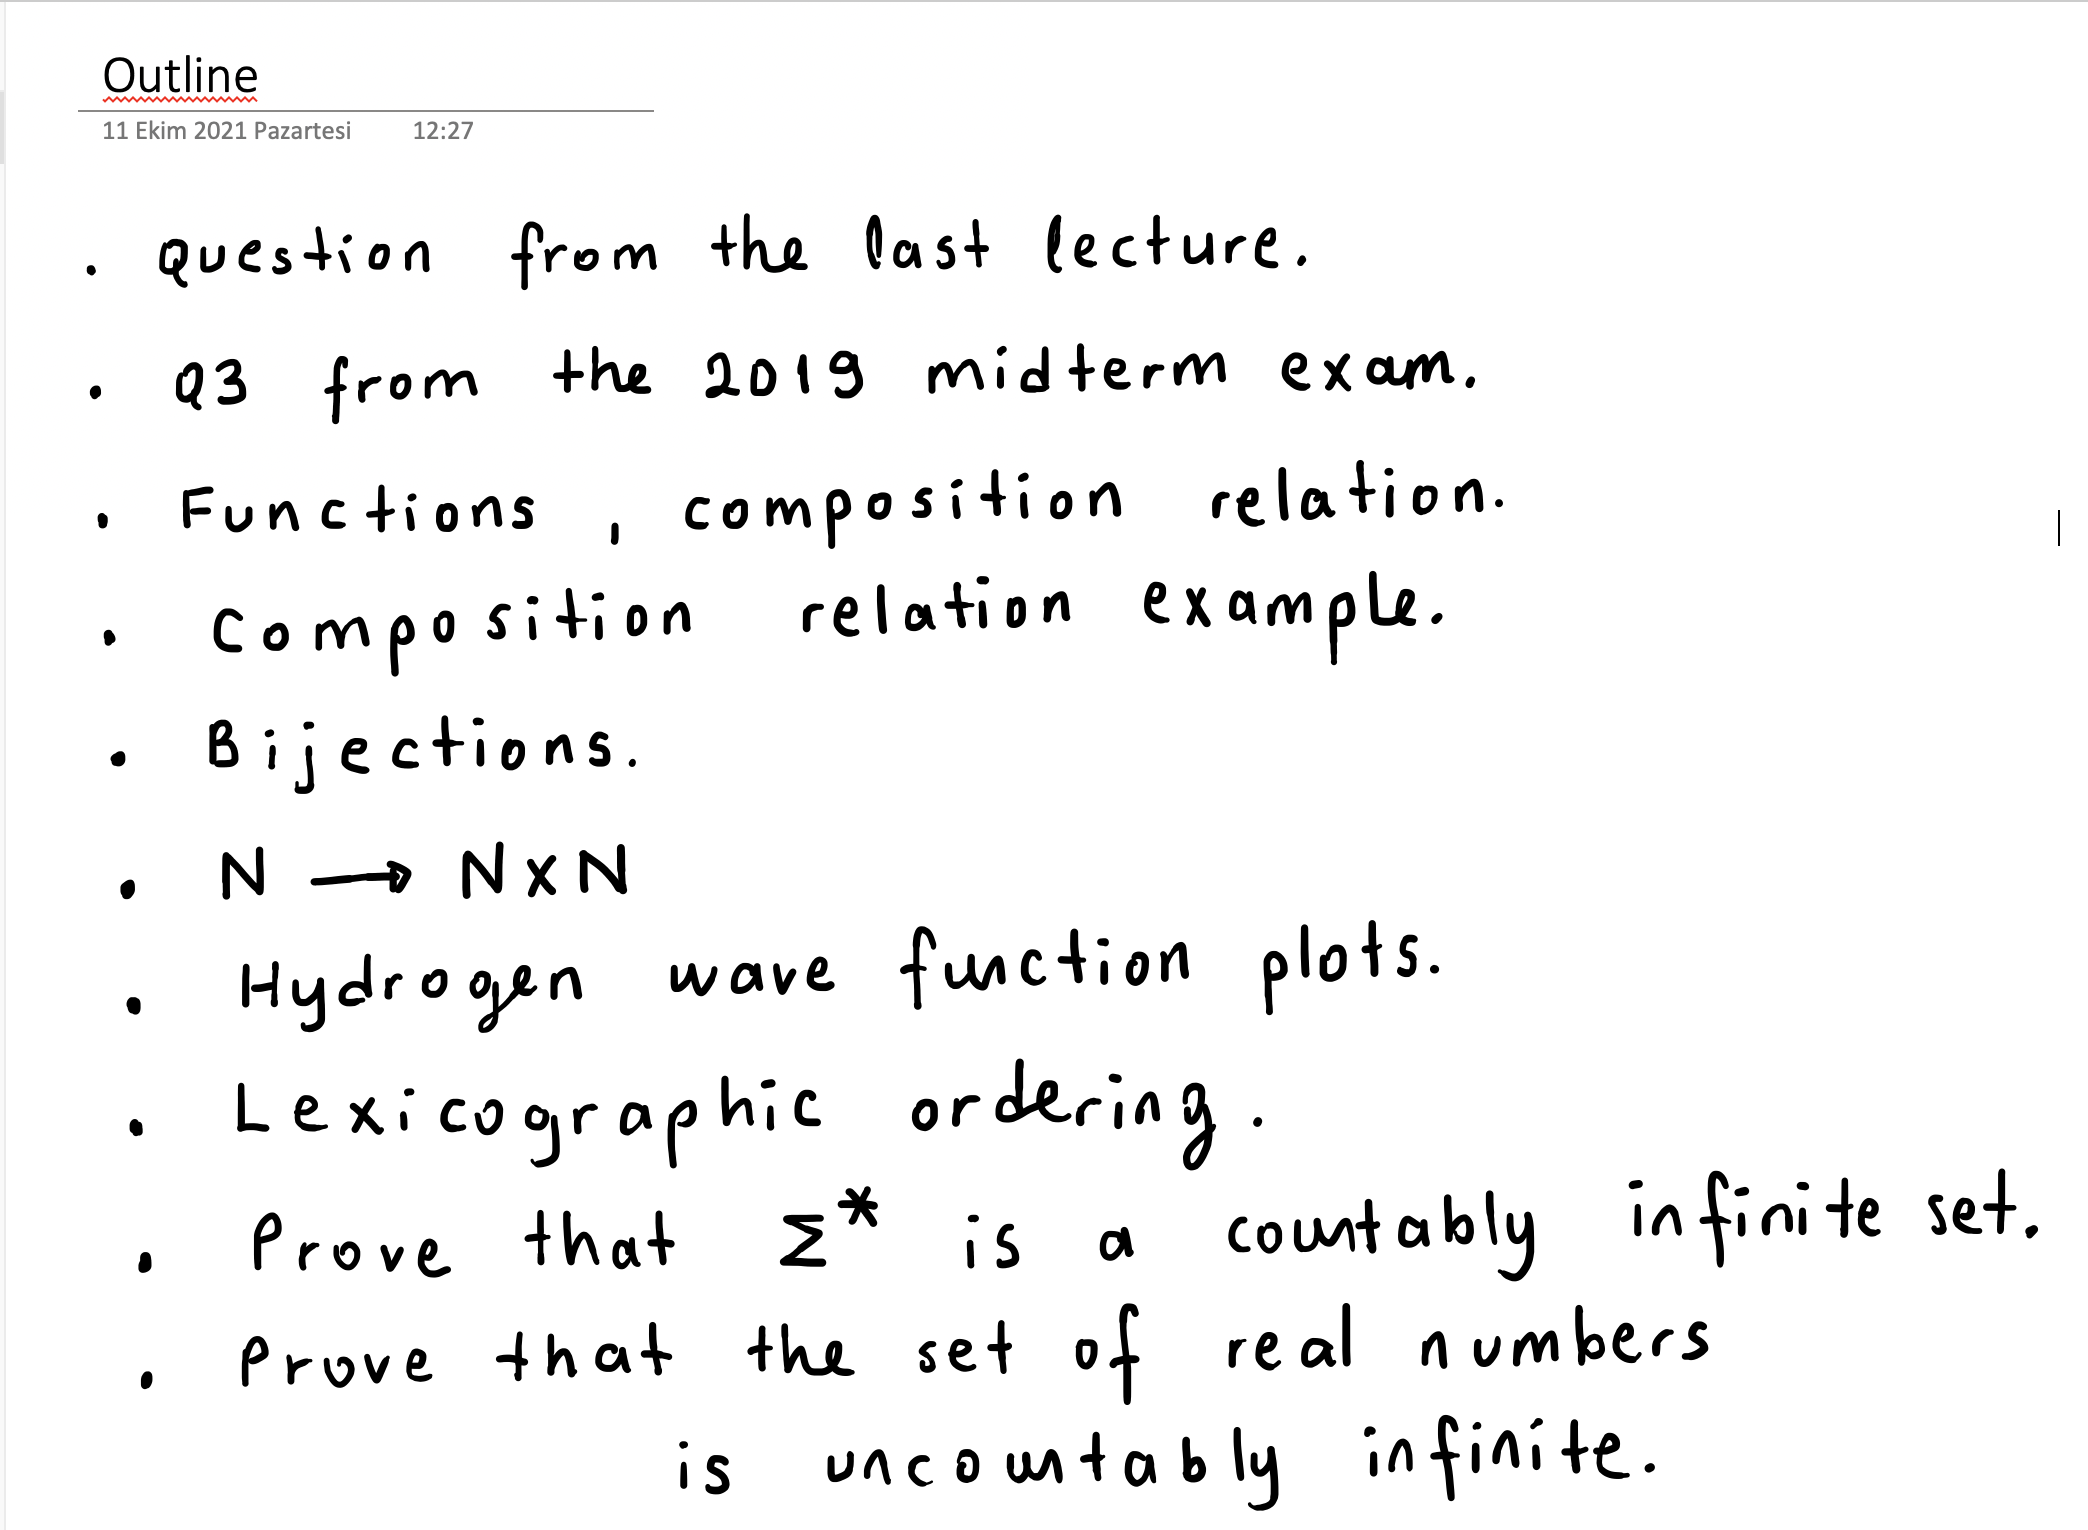 Outline
11 Ekim 2021 Pazartesi 12:27
. Question from the last lecture.
. Q3 from the 2019 midterm exam.
. Functions, composition relation.
. Composition relation example.
. Bijections.
. N → N x N
. Hydrogen wave function plots.
. Lexicographic ordering.
. Prove that Σ* is a countably infinite set.
. Prove that the set of real numbers
is uncountably infinite.